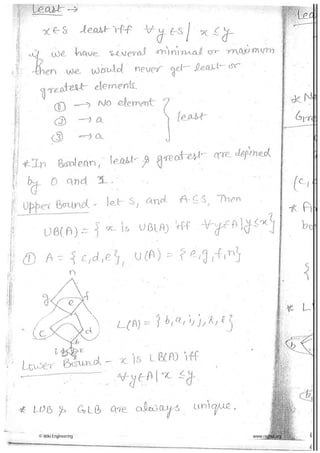 Least →
x∈S least iff ∀y∈S | x ≤ y
if we have several minimal or maximum
then we would never get least or
greatest elements.
① → No element
② → a
③ → a
} least
* In Boolean, least & greatest are defined
by 0 and 1.
Upper Bound - let S, and A⊆S, Then
UB(A) = { x is UB(A) iff ∀y∈A | y ≤ x }
① A = {c,d,e}, U(A) = {e,g,f,n}
n
g e f
c d
L(A) = { b,a,i,j,
Lower Bound - x is LB(A) iff
∀y∈A | x ≤ y.
* LUB & GLB are always unique.